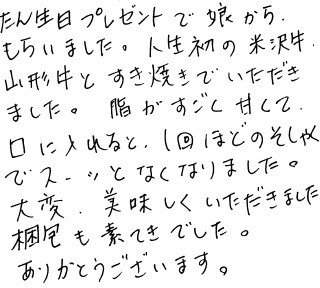 たん生日プレゼントで娘から、
もらいました。人生初の米沢牛、
山形牛とすき焼きでいただき
ました。脂がすごく甘くて、
口に入れると、1回ほどのそしゃく
でスーッとなくなりました。
大変、美味しくいただきました
梱包も素てきでした。
ありがとうございます。